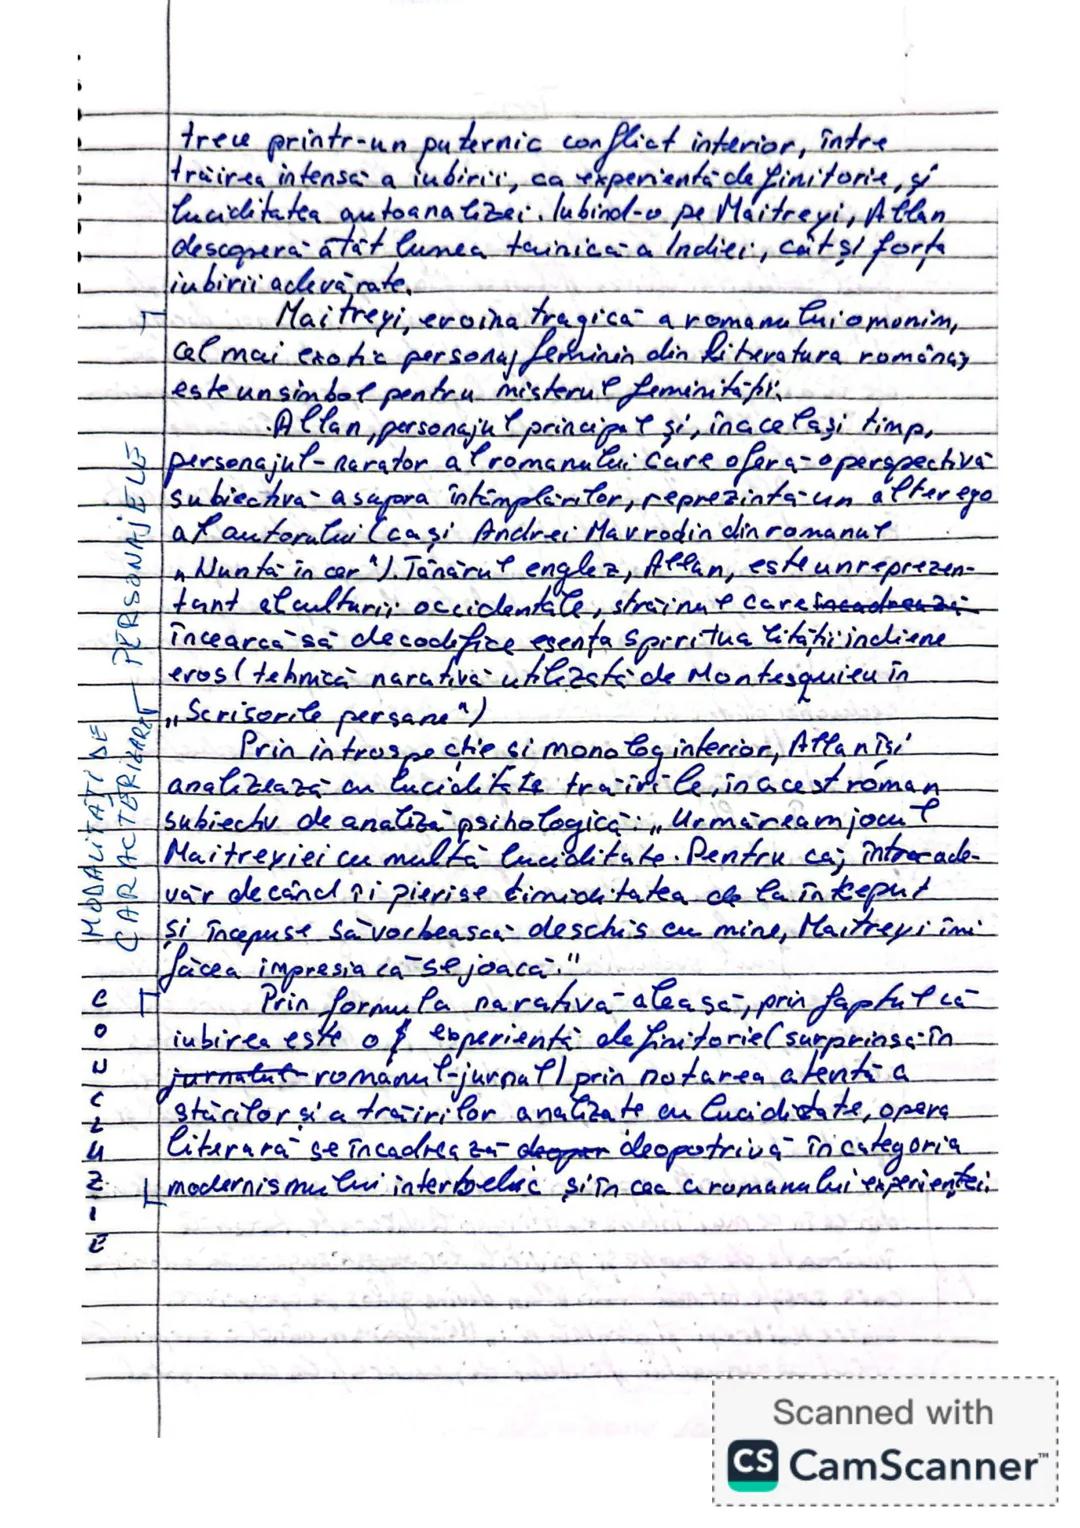 trece printr-un puternic conflict interior, între
trăirea intensă a iubirii, ca experiență definitorie, și
luciditatea autoanalizei. Iubind-o pe Maitreyi, Allan
descoperă atât lumea tainică a Indiei, cât și forța
iubirii adevărate.
Maitreyi, eroina tragică a romanului omonim,
cel mai exotic personaj feminin din literatura română,
este un simbol pentru misterul feminității.
Allan, personajul principal și, în același timp,
personajul-narator al romanului care oferă o perspectivă
subiectivă asupra întâmplărilor, reprezintă un alter ego
al autorului (ca și Andrei Mavrodin din romanul
„Nuntă în cer"). Tânărul englez, Allan, este un reprezen-
tant al culturii occidentale, străinul care încadrează
încearcă să decodifice esența spiritualității indiene
eros (tehnică narativă utilizată de Montesquieu în
„Scrisorile persane")
Prin introspecție și monolog interior, Allan își
analizează cu luciditate trăirile, în acest roman
subiectiv de analiză psihologică: „Urmăream jocul
Maitreyiei cu multă luciditate. Pentru că, într-ade-
văr de când îi pierise timiditatea de la început
și începuse să vorbească deschis cu mine, Maitreyi îmi
făcea impresia că se joacă."
Prin formula narativă aleasă, prin faptul că
iubirea este o experiență definitorie (surprinsă în
jurnalul romanul-jurnal) prin notarea atentă a
stărilor și a trăirilor analizate cu luciditate, opera
literară se încadrează deopotrivă în categoria
modernismului interbelic și în cea a romanului experienței.
MODALITĂȚI DE
CARACTERIZARE PERSONAJELE
CONCLUZIE
Scanned with
CS CamScanner™